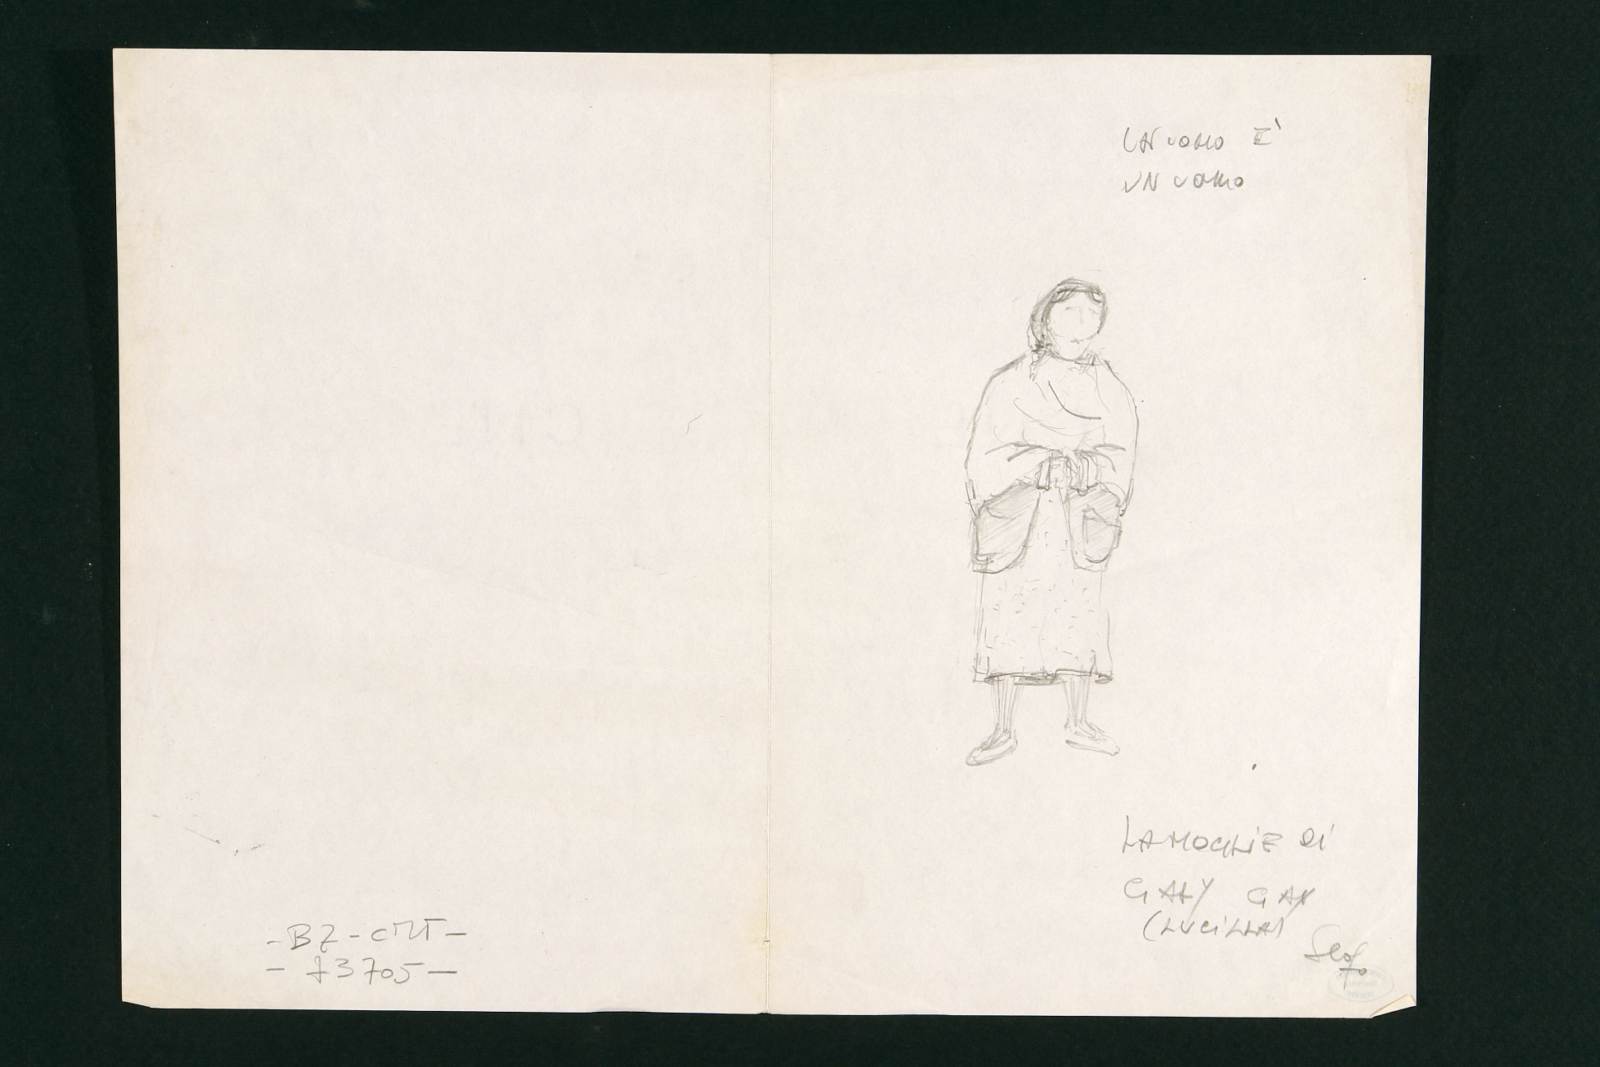 UN UOMO E'
UN UOMO
LA MOGLIE DI
GALY GAY
(LUCILLA)
- BZ - CMT -
- 73705 -